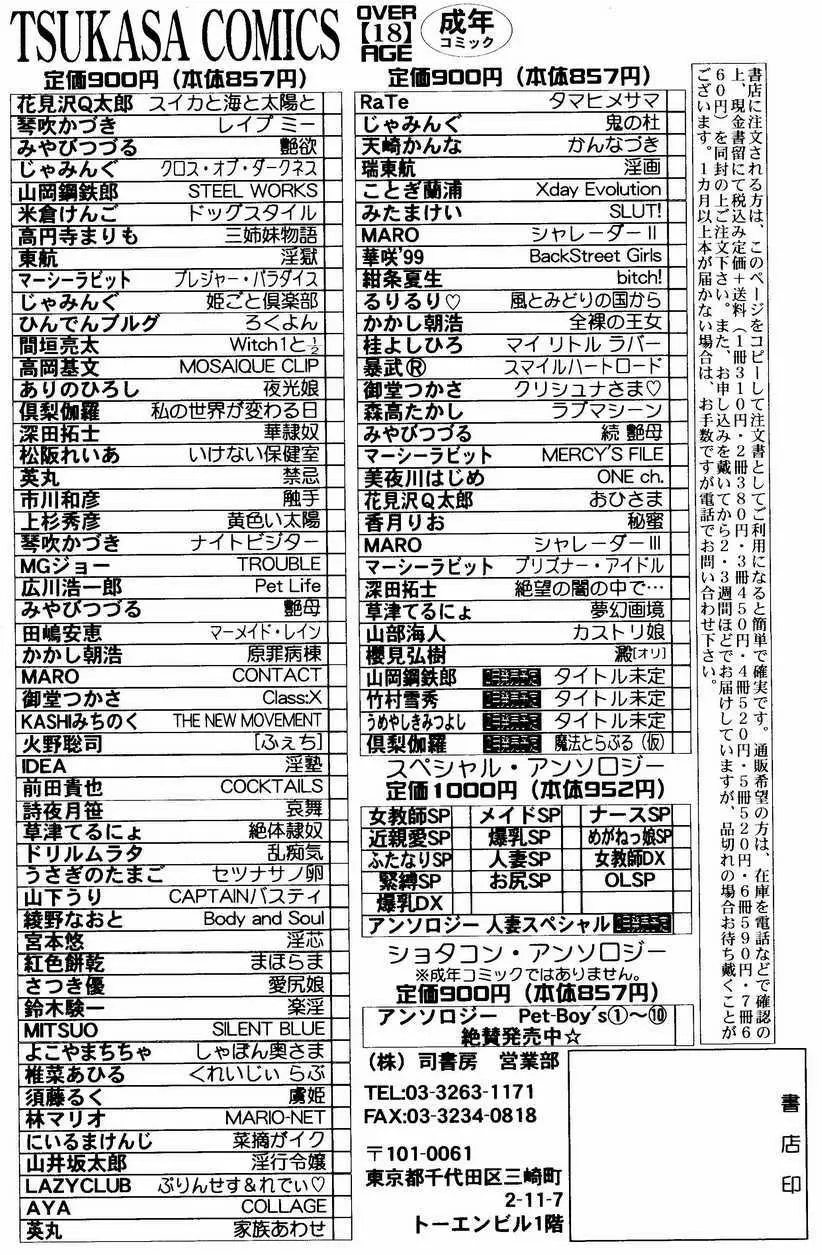 TSUKASA COMICS
OVER
【18】
AGE
成年
コミック
定価900円（本体857円）
花見沢Q太郎 スイカと海と太陽と
琴吹かづき レイプ ミー
みやびつづる 艶欲
じゃみんぐ クロス・オブ・ダークネス
山岡鋼鉄郎 STEEL WORKS
米倉けんご ドッグスタイル
高円寺まりも 三姉妹物語
東航 淫獄
マーシーラビット プレジャー・パラダイス
じゃみんぐ 姫ごと倶楽部
ひんでんブルグ ろくよん
間垣亮太 Witch1と½
高岡基文 MOSAIQUE CLIP
ありのひろし 夜光娘
倶梨伽羅 私の世界が変わる日
深田拓士 華隷奴
松阪れいあ いけない保健室
英丸 禁忌
市川和彦 触手
上杉秀彦 黄色い太陽
琴吹かづき ナイトビジター
MGジョー TROUBLE
広川浩一郎 Pet Life
みやびつづる 艶母
田嶋安恵 マーメイド・レイン
かかし朝浩 原罪病棟
MARO CONTACT
御堂つかさ Class:X
KASHIみちのく THE NEW MOVEMENT
火野聡司 [ふぇち]
IDEA 淫塾
前田貴也 COCKTAILS
詩夜月笹 哀舞
草津てるにょ 絶体隷奴
ドリルムラタ 乱痴気
うさぎのたまご セツナサノ卵
山下うり CAPTAINバスティ
綾野なおと Body and Soul
宮本悠 淫芯
紅色餅乾 まほらま
さつき優 愛尻娘
鈴木験一 楽淫
MITSUO SILENT BLUE
よこやまちちゃ しゃぼん奥さま
椎菜あひる くれいじぃ らぶ
須藤るく 虜姫
林マリオ MARIO-NET
にいるまけんじ 菜摘がイク
山井坂太郎 淫行令嬢
LAZYCLUB ぷりんせす&れでぃ♡
AYA COLLAGE
英丸 家族あわせ
定価900円（本体857円）
RaTe タマヒメサマ
じゃみんぐ 鬼の杜
天崎かんな かんなづき
瑞東航 淫画
ことぎ蘭浦 Xday Evolution
みたまけい SLUT!
MARO シャレーダーⅡ
華咲'99 BackStreet Girls
紺条夏生 bitch!
るりるり♡ 風とみどりの国から
かかし朝浩 全裸の王女
桂よしひろ マイ リトル ラバー
暴武Ⓡ スマイルハートロード
御堂つかさ クリシュナさま♡
森高たかし ラブマシーン
みやびつづる 続 艶母
マーシーラビット MERCY'S FILE
美夜川はじめ ONE ch.
花見沢Q太郎 おひさま
香月りお 秘蜜
MARO シャレーダーⅢ
マーシーラビット プリズナー・アイドル
深田拓士 絶望の闇の中で…
草津てるにょ 夢幻画境
山部海人 カストリ娘
櫻見弘樹 澱[オリ]
山岡鋼鉄郎 タイトル未定
竹村雪秀 タイトル未定
うめやしきみつよし タイトル未定
倶梨伽羅 魔法とらぶる（仮）
スペシャル・アンソロジー
定価1000円（本体952円）
女教師SP メイドSP ナースSP
近親愛SP 爆乳SP めがねっ娘SP
ふたなりSP 人妻SP 女教師DX
緊縛SP お尻SP OLSP
爆乳DX
アンソロジー 人妻スペシャル
ショタコン・アンソロジー
※成年コミックではありません。
定価900円（本体857円）
アンソロジー Pet-Boy's①〜⑩
絶賛発売中☆
（株）司書房 営業部
TEL:03-3263-1171
FAX:03-3234-0818
〒101-0061
東京都千代田区三崎町
2-11-7
トーエンビル1階
書店印
書店に注文される方は、このページをコピーして注文書としてご利用になると簡単で確実です。通販希望の方は、在庫を電話などで確認の
上、現金書留にて税込み定価＋送料（1冊310円・2冊380円・3冊450円・4冊520円・5冊520円・6冊590円・7冊6
60円）を同封の上ご注文下さい。また、お申し込みを戴いてから2・3週間ほどでお届けしていますが、品切れの場合お待ち戴くことが
ございます。1カ月以上本が届かない場合は、お手数ですが電話でお問い合わせ下さい。